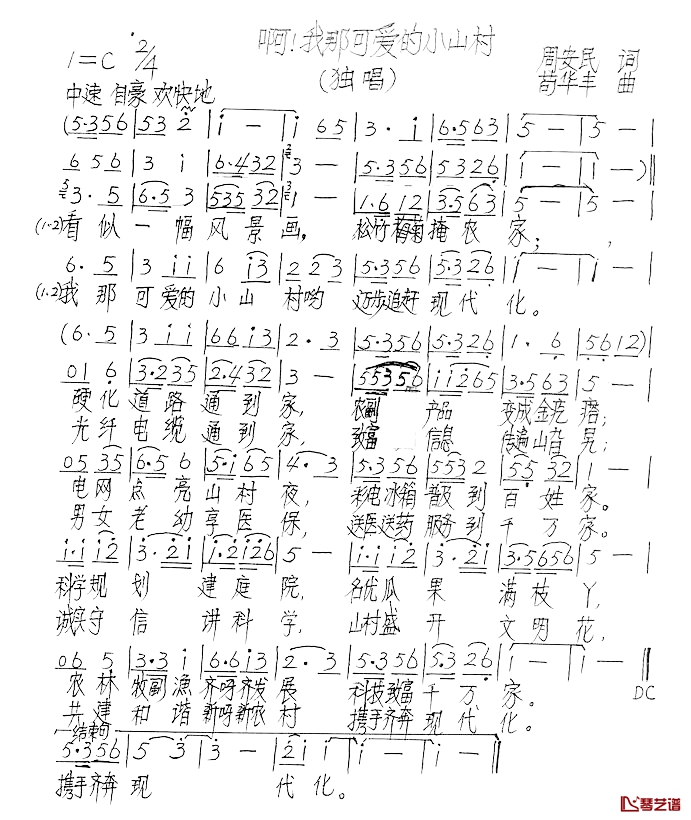 啊!我那可爱的小山村
1=C 2/4
(独唱)
周安民 词
苟华丰 曲
中速 自豪 欢快地
(5·356 | 53 2 | i — | i 65 | 3 · i | 6·563 | 5 — | 5 — |
656 | 3 i | 6·432 | 3 — | 5·356 | 5326 | i — | i — )‖
3 · 5 | 6·5 3 | 535 32 | 1 — | 1·6 12 | 3·563 | 5 — | 5 — |
(1·2)看似一幅风景画, 松竹葡萄掩农家;,
6 · 5 | 3 i i | 6 i3 | 2 23 | 5·356 | 5·326 | i — | i — |
(1·2)我那可爱的小山村哟 迈步追赶现代化。
(6 · 5 | 3 i i | 66 i3 | 2 · 3 | 5·356 | 5·326 | 1 · 6 | 5612 )|
01 6 | 3·235 | 2·432 | 3 — | 55356 | i i i265 | 3·563 | 5 — |
硬化道路通到家, 农副产品变成金疙瘩;
光纤电缆通到家, 致富信息传遍山旮旯;
05 35 | 6·5 6 | 5·i 65 | 4 · 3 | 5·356 | 5532 | 55 32 | 1 — |
电网点亮山村夜, 彩电冰箱普及到百姓家。
男女老幼享医保, 送医送药服务到千万家。
i·i i2 | 3·2i | i·2i26 | 5 — | i·i i2 | 3·2i | 3·5656 | 5 — |
科学规划建庭院, 名优瓜果满枝丫,
诚实守信讲科学, 山村盛开文明花,
06 5 | 3·3 i | 6·6 i3 | 2 · 3 | 5·356 | 5·3 26 | i — | i — ‖
农林牧副渔齐呼齐发展 科技致富千万家。 DC
共建和谐新呀新农村 携手齐奔现代化。
结束句
5·356 | 5 3 | 3 — | 2i i | i — | i — ‖
携手齐奔现代化。
飞琴艺谱